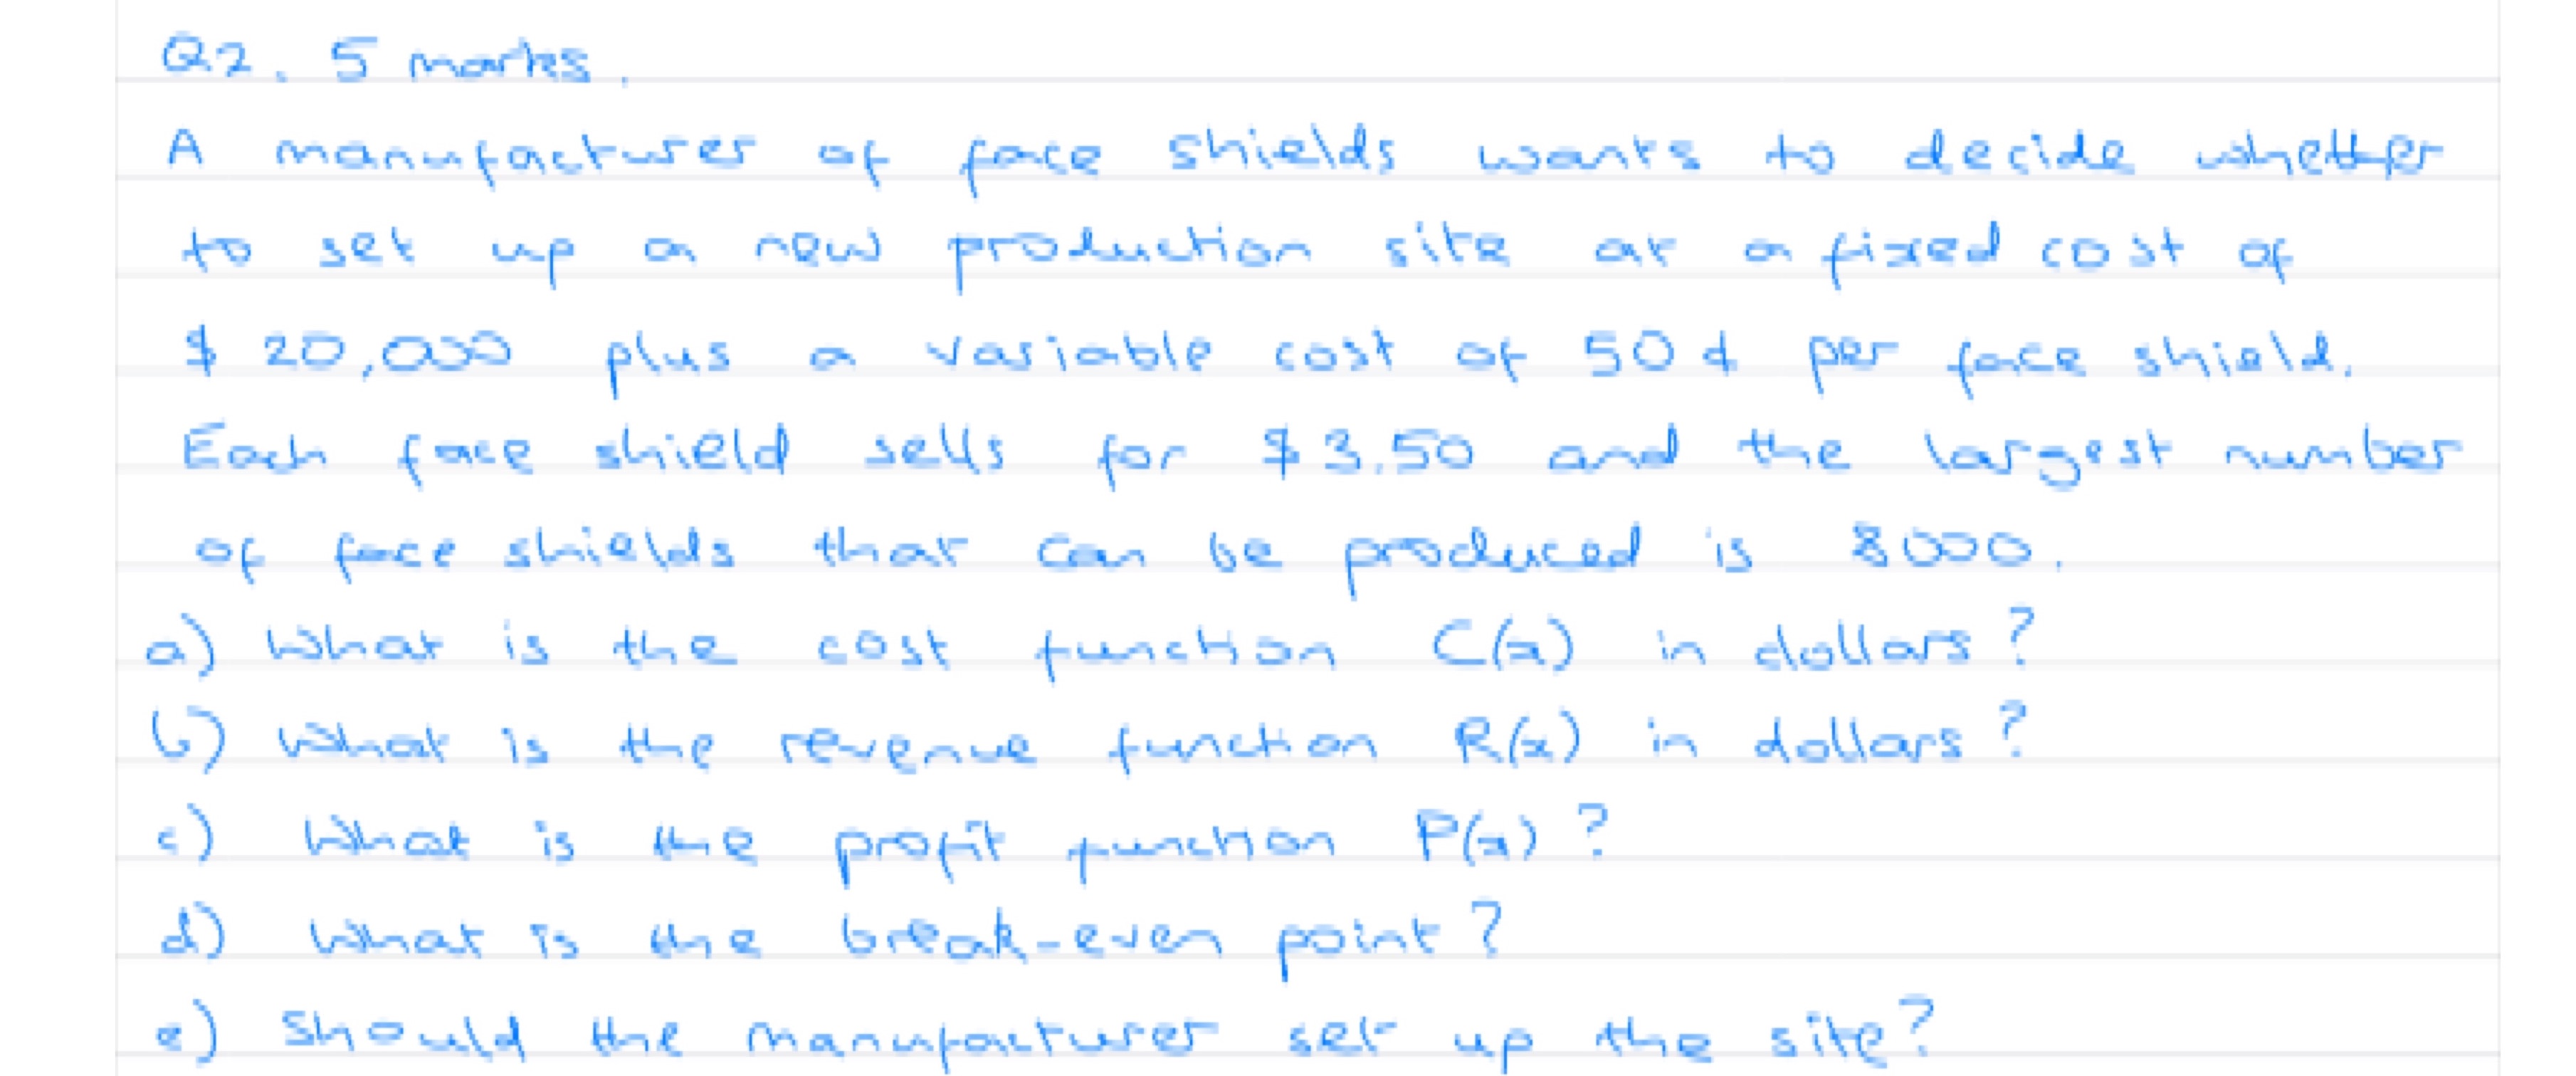 Q2. 5 marks.
A manufacturer of face shields wants to decide whether
to set up a new production site at a fixed cost of
$ 20,000 plus a variable cost of 50 ¢ per face shield.
Each face shield sells for $ 3.50 and the largest number
of face shields that can be produced is 8000.
a) What is the cost function C(x) in dollars?
b) What is the revenue function R(x) in dollars?
c) What is the profit function P(x)?
d) What is the break-even point?
e) Should the manufacturer set up the site?